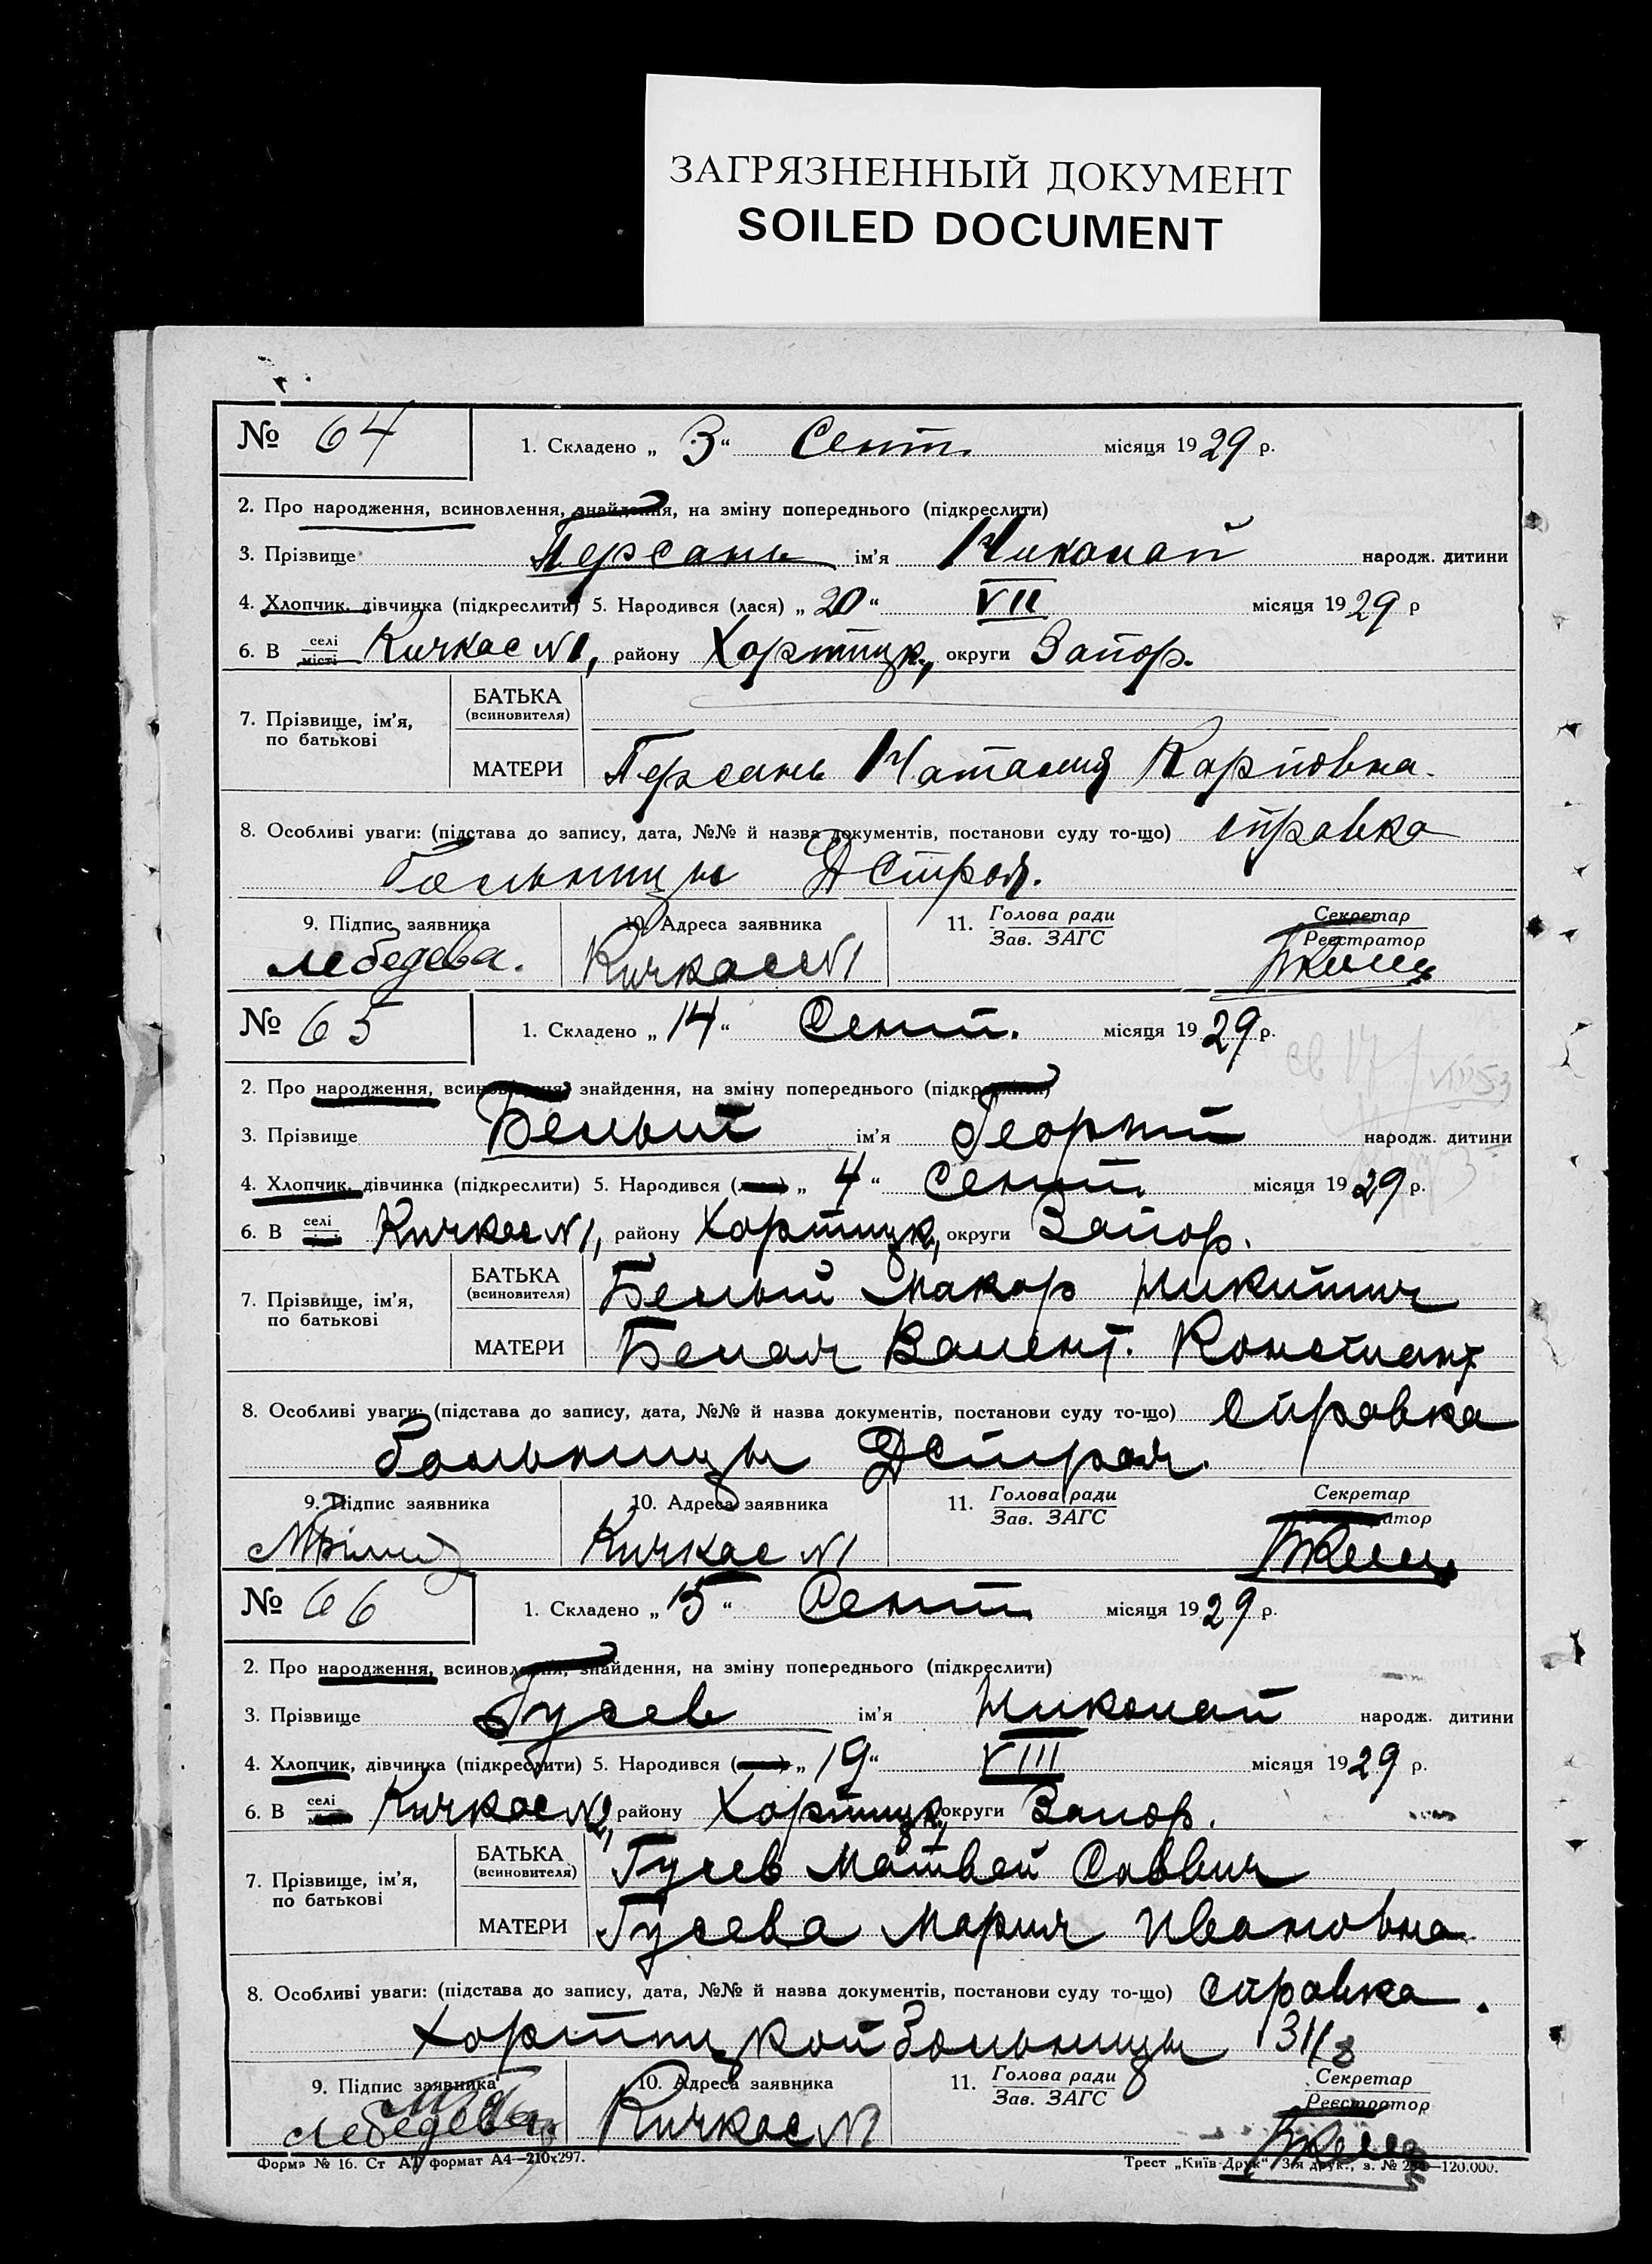 ЗАГРЯЗНЕННЫЙ ДОКУМЕНТ
SOILED DOCUMENT
№ 64 1. Складено „ 3 “ Сент. місяця 1929 р.
2. Про народження, всиновлення, знайдення, на зміну попереднього (підкреслити)
3. Прізвище Персань ім’я Николай народж. дитини
4. Хлопчик, дівчинка (підкреслити) 5. Народився (лася) „ 20 “ VII місяця 1929 р
6. В селі місті Кичкас N1, району Хортицк., округи Запор.
7. Прізвище, ім’я, по батькові БАТЬКА (всиновителя)
МАТЕРИ Персань Наталия Карповна.
8. Особливі уваги: (підстава до запису, дата, №№ й назва документів, постанови суду то-що) справка
больницы ДСтроя.
9. Підпис заявника 10. Адреса заявника 11. Голова ради Зав. ЗАГС Секретар Реєстратор
Лебедева. Кичкас N1
№ 65 1. Складено „ 14 “ Сент. місяця 1929 р.
2. Про народження, всиновлення, знайдення, на зміну попереднього (підкреслити)
3. Прізвище Белый ім’я Георгий народж. дитини
4. Хлопчик, дівчинка (підкреслити) 5. Народився „ 4 “ Сент. місяця 1929 р.
6. В селі Кичкас N1, району Хортицк., округи Запор.
7. Прізвище, ім’я, по батькові БАТЬКА (всиновителя) Белый Макар Никитич
МАТЕРИ Белая Валент. Констант
8. Особливі уваги: (підстава до запису, дата, №№ й назва документів, постанови суду то-що) справка
больницы ДСтроя.
9. Підпис заявника 10. Адреса заявника 11. Голова ради Зав. ЗАГС Секретар Реєстратор
Кичкас N1
№ 66 1. Складено „ 15 “ Сент. місяця 1929 р.
2. Про народження, всиновлення, знайдення, на зміну попереднього (підкреслити)
3. Прізвище Гусев ім’я Николай народж. дитини
4. Хлопчик, дівчинка (підкреслити) 5. Народився „ 19 “ VIII місяця 1929 р.
6. В селі Кичкас N2, району Хортицк., округи Запор.
7. Прізвище, ім’я, по батькові БАТЬКА (всиновителя) Гусев Матвей Саввич
МАТЕРИ Гусева Мария Ивановна
8. Особливі уваги: (підстава до запису, дата, №№ й назва документів, постанови суду то-що) справка.
Хортицкой больницы 31/8
9. Підпис заявника 10. Адреса заявника 11. Голова ради Зав. ЗАГС Секретар Реєстратор
Лебедева Кичкас N1
Форма № 16. Ст А4 формат А4—210х297. Трест „Київ-Друк“ 3-я друк., з. № —120.000.